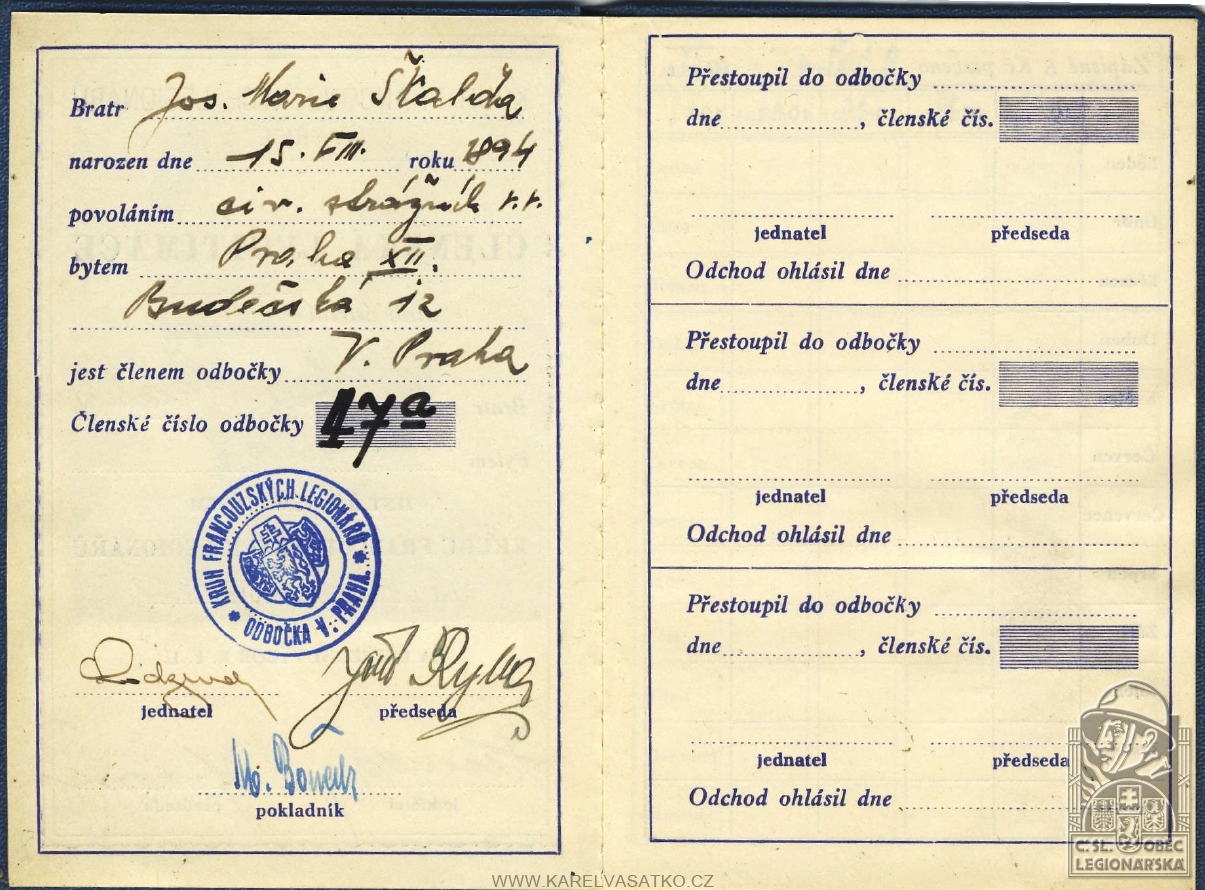 Bratr Jos. Marie Škalda
narozen dne 15. VIII. roku 1894
povoláním civ. strážník v.v.
bytem Praha XII.
Budečská 12
jest členem odbočky V. Praha
Členské číslo odbočky 17a
* KRUH FRANCOUZSKÝCH LEGIONÁŘŮ *
ODBOČKA V. PRAHA.
jednatel předseda
pokladník
Přestoupil do odbočky
dne , členské čís.
jednatel předseda
Odchod ohlásil dne
Přestoupil do odbočky
dne , členské čís.
jednatel předseda
Odchod ohlásil dne
Přestoupil do odbočky
dne , členské čís.
jednatel předseda
Odchod ohlásil dne
Č:SL. OBEC
LEGIONÁŘSKÁ
WWW.KARELVASATKO.CZ